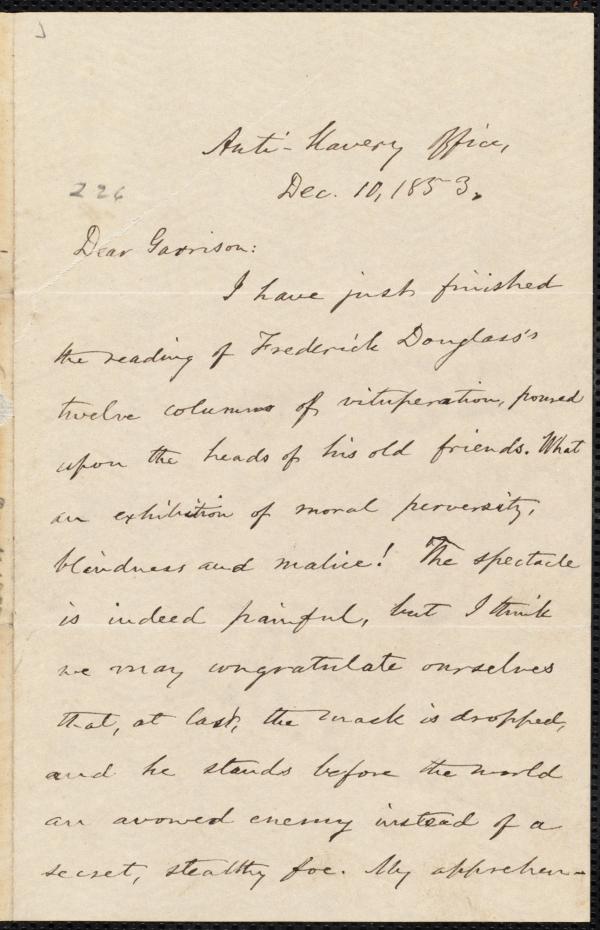 Anti-Slavery Office,
Dec. 10, 1853.
226
Dear Garrison:
I have just finished
the reading of Frederick Douglass's
twelve columns of vituperation, poured
upon the heads of his old friends. What
an exhibition of moral perversity,
blindness and malice! The spectacle
is indeed painful, but I think
we may congratulate ourselves
that, at last, the mask is dropped,
and he stands before the world
an avowed enemy instead of a
secret, stealthy foe. My apprehen-